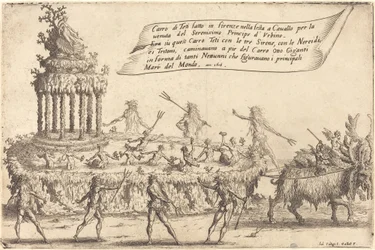 Carro di Teti fatto in firenze nella festa a Cavallo per la
venuta del Serenissimo Principe d Vrbino.
sopra questo Carro Teti con le tre Sirene, con le Nereidi
et Tritoni, caminauano a pie del Carro Otto Giganti
in forma di tanti Nettunni che figurauano i principali
Mari del Mondo.